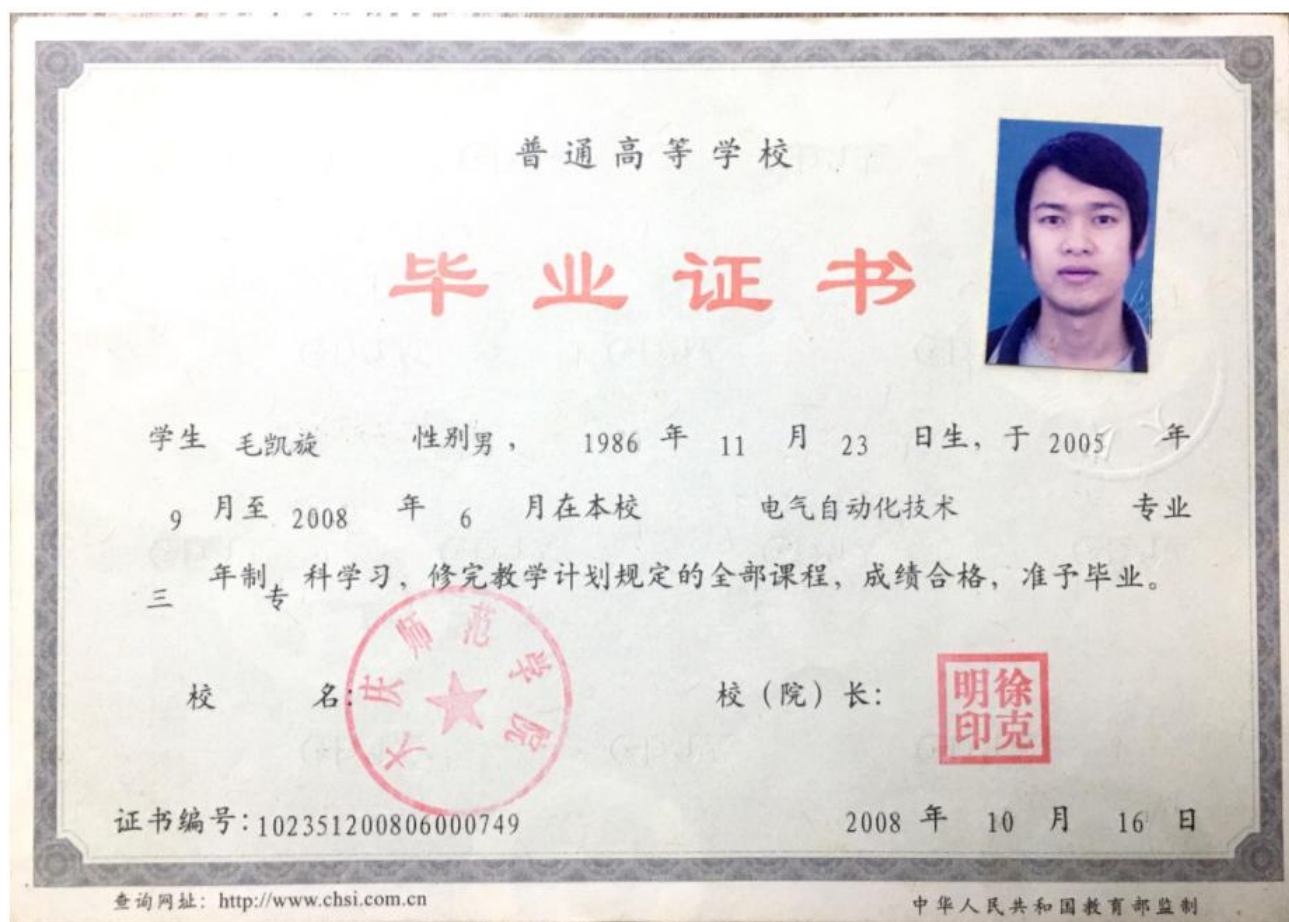 普通高等学校
毕业证书
学生 毛凯旋 性别男， 1986 年 11 月 23 日生，于 2005 年
9 月至 2008 年 6 月在本校 电气自动化技术 专业
三 年制 专 科学习，修完教学计划规定的全部课程，成绩合格，准予毕业。
校 名：
大庆师范学院
校（院）长：
徐克明印
证书编号：102351200806000749
2008 年 10 月 16 日
查询网址：http://www.chsi.com.cn
中华人民共和国教育部监制